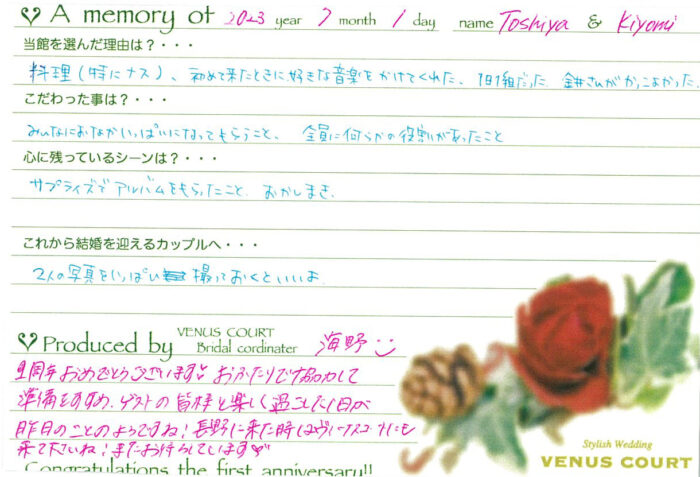 A memory of 2023 year 7 month 1 day name Toshiya & Kiyomi
当館を選んだ理由は？・・・
料理（特にナス）、初めて来たときに好きな音楽をかけてくれた、1日1組だった 金井さんがかっこよかった。
こだわった事は？・・・
みんなにおなかいっぱいになってもらうこと、全員に何らかの役割があったこと
心に残っているシーンは？・・・
サプライズでアルバムをもらったこと、おかしまき、
これから結婚を迎えるカップルへ・・・
2人の写真をいっぱい撮っておくといいよ
Produced by VENUS COURT Bridal cordinater 海野
1周年おめでとうございます♡ おふたりで協力して
準備をすすめ、ゲストの皆様と楽しく過ごした1日が
昨日のことのようですね！長野に来た時はヴィーナスコートにも
来て下さいね！またお待ちしています♡
Congratulations the first anniversary!!
Stylish Wedding
VENUS COURT